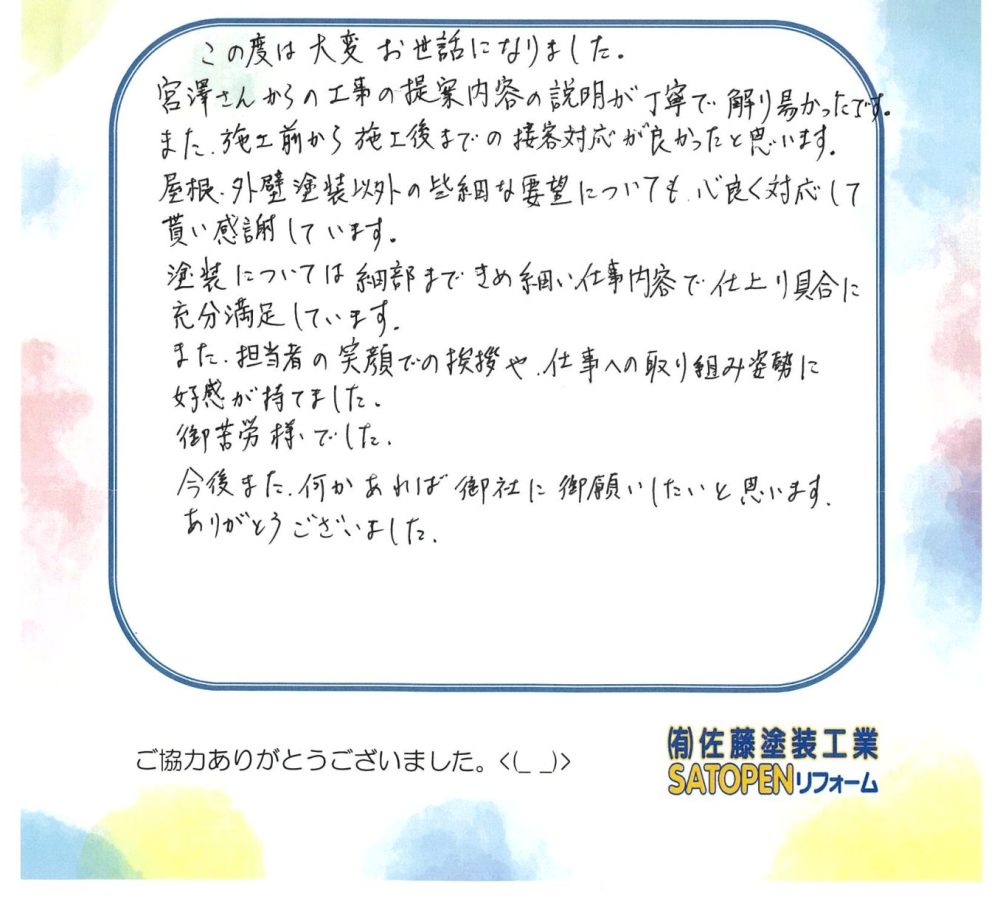 この度は大変お世話になりました。
宮澤さんからの工事の提案内容の説明が丁寧で解り易かったです。
また、施工前から施工後までの接客対応が良かったと思います。
屋根、外壁塗装以外の些細な要望についても、心良く対応して
貰い感謝しています。
塗装については細部まできめ細い仕事内容で仕上り具合に
充分満足しています。
また、担当者の笑顔での挨拶や、仕事への取り組み姿勢に
好感が持てました。
御苦労様でした。
今後また、何かあれば御社に御願いしたいと思います。
ありがとうございました。
ご協力ありがとうございました。<(_ _)>
㈲佐藤塗装工業
SATOPENリフォーム